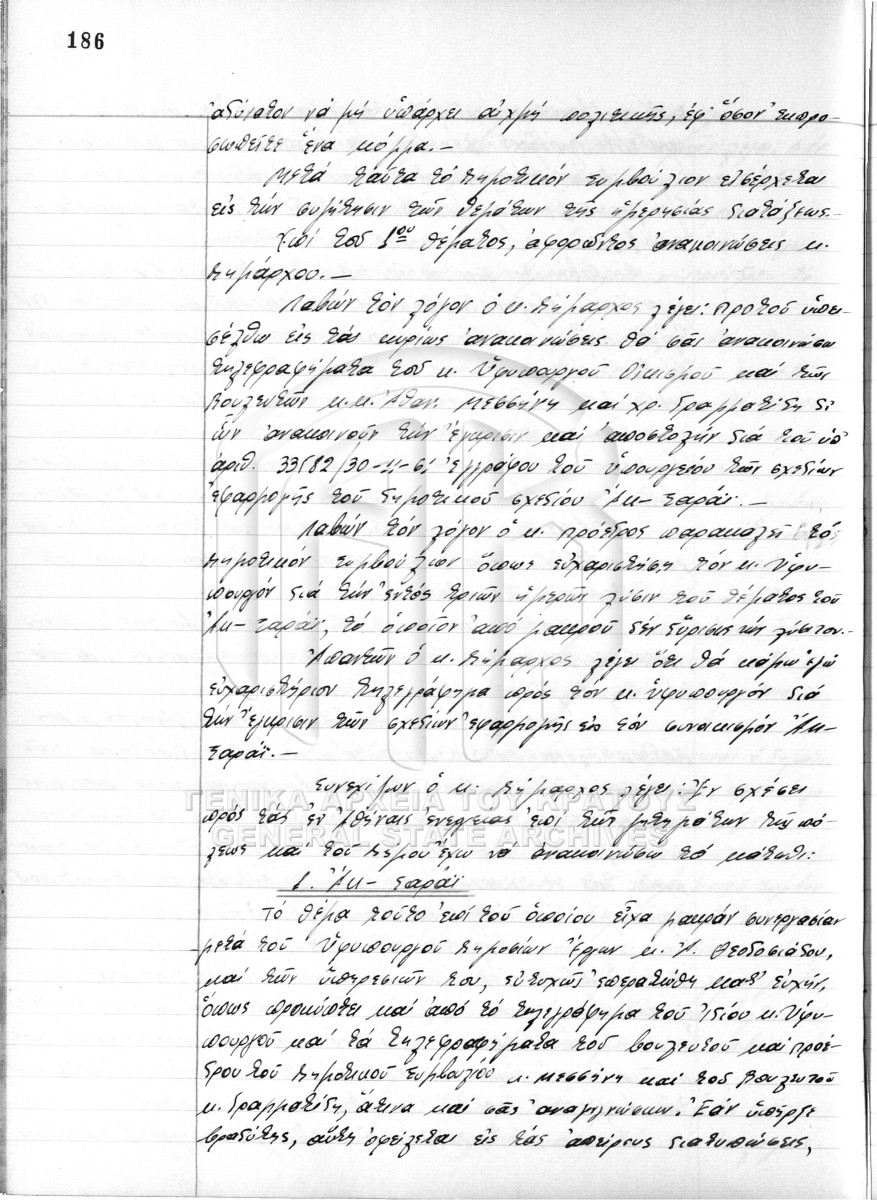 186
ἀδύνατον νά μή ὑπάρχει αἰχμή πολιτικῆς, ἐφ' ὅσον ἐκπρο-
σωπεῖτε ἕνα κόμμα.-
Μετά ταῦτα τό Δημοτικόν Συμβούλιον εἰσέρχεται
εἰς τήν συζήτησιν τῶν θεμάτων τῆς ἡμερησίας διατάξεως.-
Ἐπί τοῦ 1ου θέματος, ἀφορῶντος ἀνακοινώσεις κ.
Δημάρχου.-
Λαβών τόν λόγον ὁ κ. Δήμαρχος λέγει: Προτοῦ ὑπει-
σέλθω εἰς τάς κυρίως ἀνακοινώσεις θά σᾶς ἀνακοινώσω
τηλεγραφήματα τοῦ κ. Ὑφυπουργοῦ Οἰκισμοῦ καί τῶν
Βουλευτῶν κ.κ. Ἀθαν. Μεσσήνη καί Χρ. Γραμματίδη δι'
ὧν ἀνακοινοῦν τήν ἔγκρισιν καί ἀποστολήν διά τοῦ ὑπ'
ἀριθ. 33582/30-11-61 ἐγγράφου τοῦ Ὑπουργείου τῶν σχεδίων
ἐφαρμογῆς τοῦ δημοτικοῦ σχεδίου Ἀκ-Σαράϊ.-
Λαβών τόν λόγον ὁ κ. Πρόεδρος παρακαλεῖ τό
Δημοτικόν Συμβούλιον ὅπως εὐχαριστήση τόν κ. Ὑφυ-
πουργόν διά τήν ἐντός τριῶν ἡμερῶν λύσιν τοῦ θέματος τοῦ
Ἀκ-Σαράϊ, τό ὁποῖον ἀπό μακροῦ δέν εὕρισκε τήν λύσιν του.-
Ἀπαντῶν ὁ κ. Δήμαρχος λέγει ὅτι θά κάμω ἐγώ
εὐχαριστήριον τηλεγράφημα πρός τόν κ. ὑφυπουργόν διά
τήν ἔγκρισιν τῶν σχεδίων ἐφαρμογῆς εἰς τόν συνοικισμόν Ἀκ-
Σαράϊ.-
Συνεχίζων ὁ κ. Δήμαρχος λέγει: Ἐν σχέσει
πρός τάς ἐν Ἀθήναις ἐνεργείας ἐπί τῶν ζητημάτων τῆς πό-
λεως καί τοῦ Δήμου ἔχω νά ἀνακοινώσω τά κάτωθι:
1. Ἀκ-Σαράϊ
Τό θέμα τοῦτο ἐπί τοῦ ὁποίου εἶχα μακράν συνεργασίαν
μετά τοῦ Ὑφυπουργοῦ Δημοσίων Ἔργων κ. Ἀ. Θεοδοσιάδου,
καί τῶν ὑπηρεσιῶν του, εὐτυχῶς ἐπερατώθη κατ' εὐχήν,
ὅπως προκύπτει καί ἀπό τό τηλεγράφημα τοῦ ἰδίου κ. Ὑφυ-
πουργοῦ καί τά τηλεγραφήματα τοῦ βουλευτοῦ καί προέ-
δρου τοῦ Δημοτικοῦ Συμβουλίου κ. Μεσσήνη καί τοῦ Βουλευτοῦ
κ. Γραμματίδη, ἅτινα καί σᾶς ἀναγιγνώσκω. Ἐάν ὑπῆρξε
βραδύτης, αὕτη ὀφείλεται εἰς τάς ἀπείρους διατυπώσεις,
ΓΕΝΙΚΑ ΑΡΧΕΙΑ ΤΟΥ ΚΡΑΤΟΥΣ
GENERAL STATE ARCHIVES